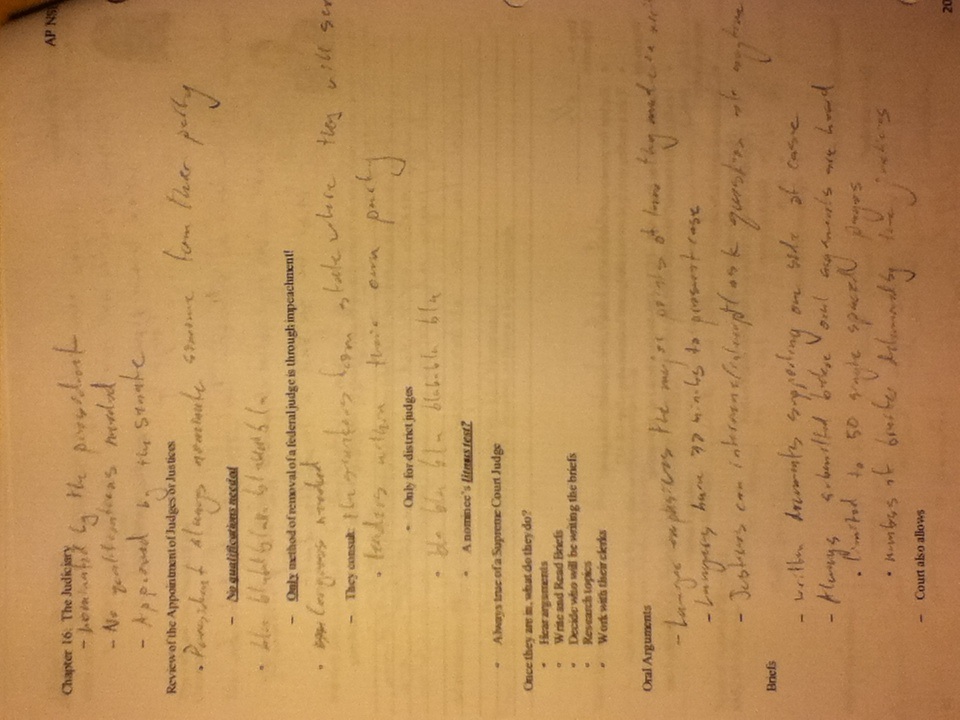 AP NSL
Chapter 16: The Judiciary
- nominated by the president
- No qualifications needed
- Approved by the senate
Review of the Appointment of Judges or Justices
• President always nominate someone from their party
– No qualifications needed
• bla
– Only method of removal of a federal judge is through impeachment!
• Congress needed
– They consult: the senators from state where they will
• leaders within their own party
• Only for district judges
• bla bla bla blablabla bla
• A nominee's litmus test?
• Always true of a Supreme Court Judge
Once they are in, what do they do?
• Hear arguments
• Write and Read Briefs
• Decide who will be writing the briefs
• Research topics
• Work with their clerks
Oral Arguments
- the major points of they made in
- Lawyers have minutes to present case
- Justices can intervene/interrupt/ask question at anytime
Briefs
- written documents supporting one side of case
- Always submitted before oral arguments are heard
• Limited to 50 single spaced pages
• numbers of determined by the justices
– Court also allows
20